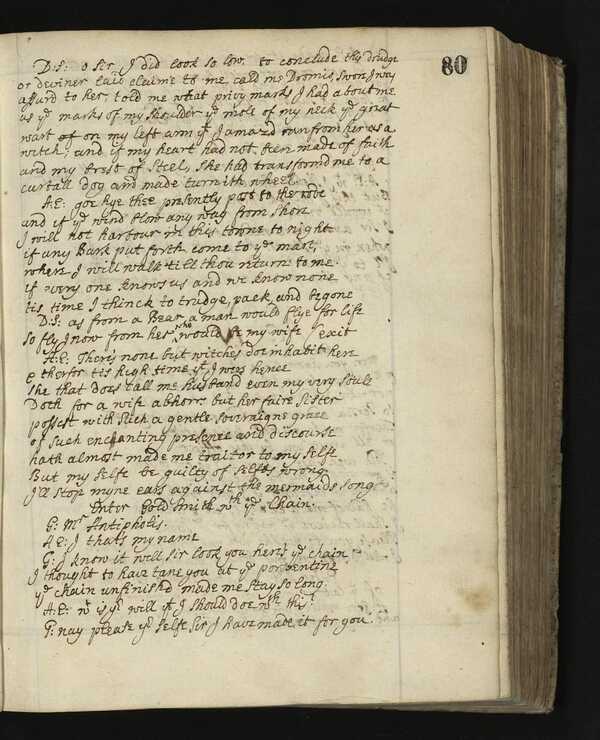 80
D:S: o Sir, I did look so low. to conclude this drudge
or deviner laid claime to me, cald me Dromio, swore I was
assurd to her, told me what privy marks I had about me
as ye marks of my shoulder ye mole of my neck ye great
wart on my left arm yt I amazd run from her as a
witch; and if my heart had not been made of faith
and my brest of steel, she had transformd me to a
curtall dog and made turn ith wheel
A:E: goe hye thee presently post to the rode
and if ye wind blow any way from shore
I will not harbour in this towne to night
if any Bark put forth come to ye mart,
where I will walk till thou return to me.
if every one knows us and we know none
tis time I thinck to trudge, pack, and begone
D:S: as from a Bear a man would flye for life
so fly I now from her who would be my wife exit
A:E: There's none but witches doe inhabit here
& therfor tis high time yt I were hence
she that does call me husband even my very soule
Doth for a wife abhorr. but her faire sister
possest with such a gentle soveraigne grace
of such enchanting presence and discourse
hath almost made me traitor to my selfe
But my selfe be guilty of selfes wrong
I'll stop myne ears against the mermaids song
Enter Gold smith wth ye Chain.
G: Mr Antipholis.
A:E: I thats my name
G: I know it well sir look you here's ye chain
I thought to have tane you at ye porpentine
ye chain unfinishd made me stay so long.
A:E: wt is yr will yt I should doe wth this?
G: nay please yr selfe Sir I have made it for you.